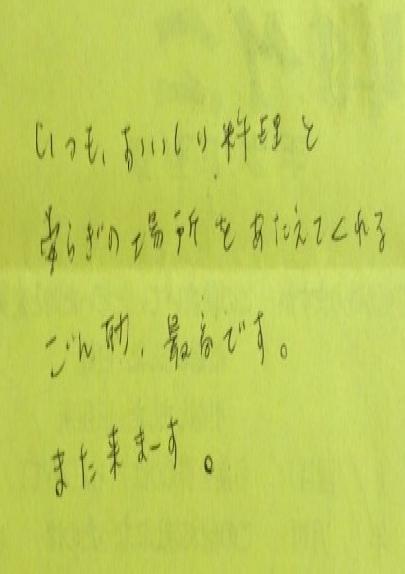 いつも、おいしい料理と
安らぎの場所をあたえてくれる
ごん助、最高です。
また来まーす。